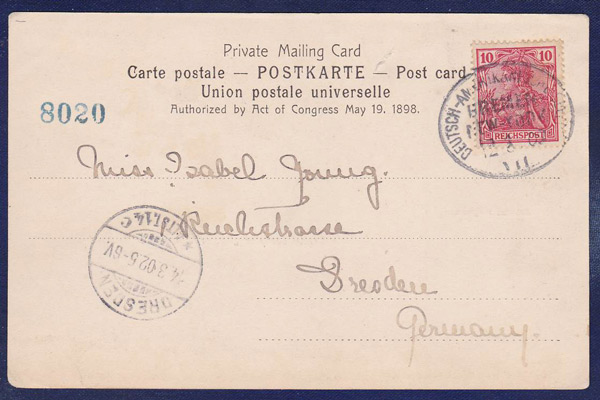 Private Mailing Card
Carte postale — POSTKARTE — Post card
Union postale universelle
Authorized by Act of Congress May 19. 1898.
8020
10 10
REICHSPOST
DEUTSCH-AMERIKAN.
BREMEN
NEW YORK
VII
Miss Isabel Young.
Reichstrasse
Dresden
Germany.
DRESDEN
24.3.02.5-6V.